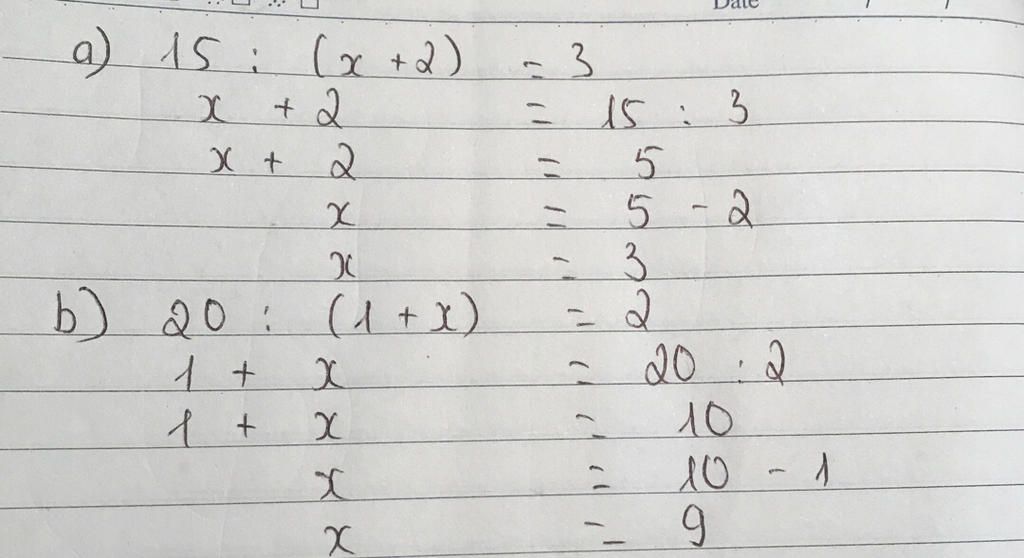 Date / /
a) 15 : (x + 2) = 3
x + 2 = 15 : 3
x + 2 = 5
x = 5 - 2
x = 3
b) 20 : (1 + x) = 2
1 + x = 20 : 2
1 + x = 10
x = 10 - 1
x = 9